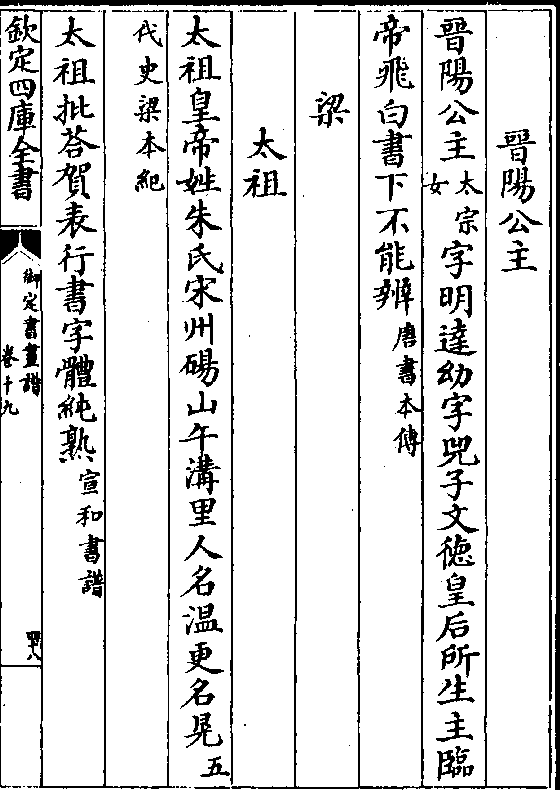 晉陽公主
晉陽公主太宗女字明達幼字兕子文徳皇后所生主臨
帝飛白書下不能辨唐書本傳
梁
太祖
太祖皇帝姓朱氏宋州碭山午溝里人名温更名晃五
代史梁本紀
太祖批荅賀表行書字體純熟宣和書譜
欽定四庫全書
御定書畫譜
卷十九
四八